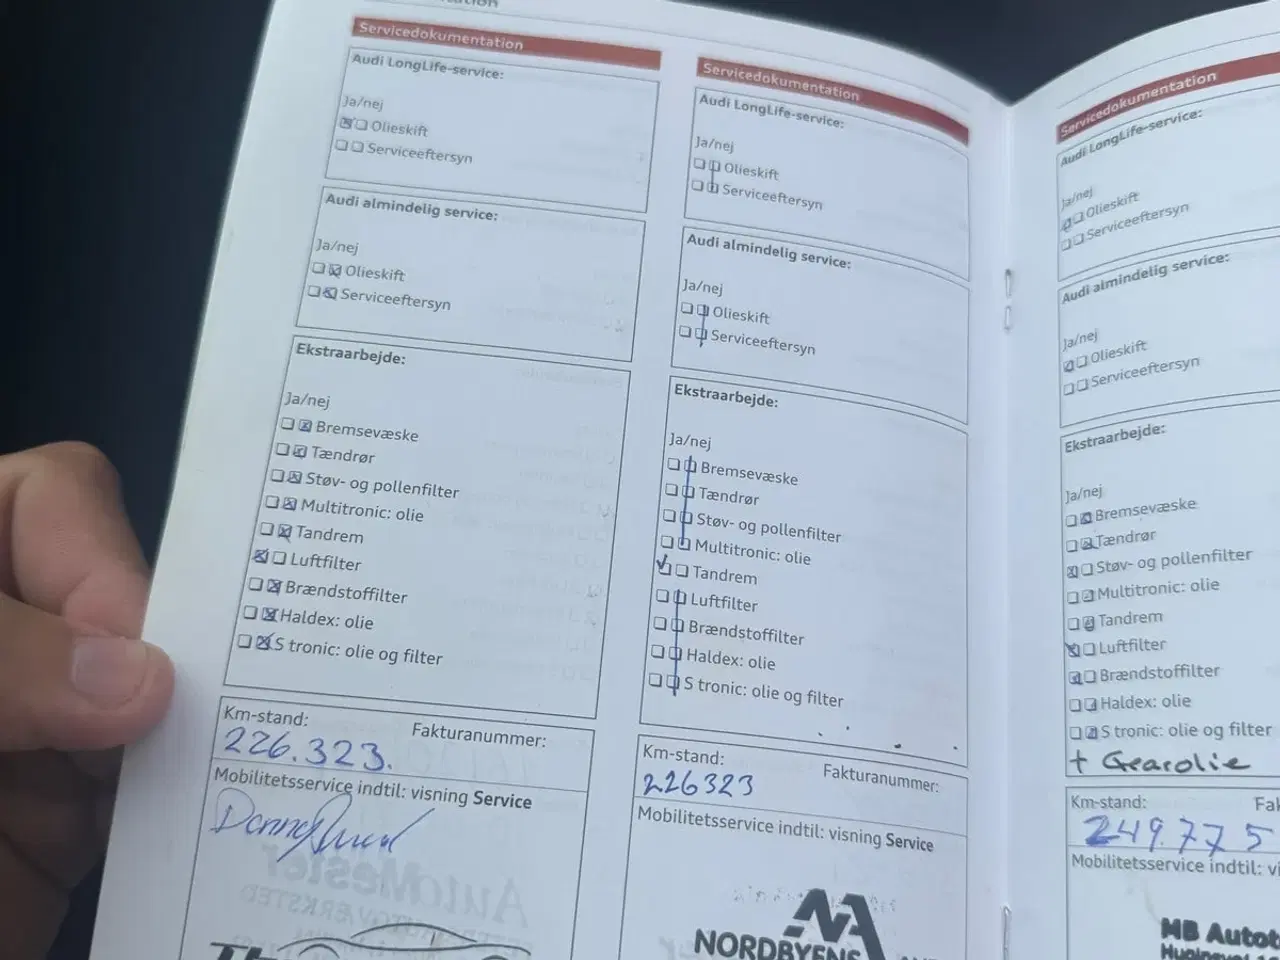 Servicedokumentation
Audi LongLife-service:
Ja/nej
Olieskift
Serviceeftersyn
Audi almindelig service:
Ja/nej
Olieskift
Serviceeftersyn
Ekstraarbejde:
Ja/nej
Bremsevæske
Tændrør
Støv- og pollenfilter
Multitronic: olie
Tandrem
Luftfilter
Brændstoffilter
Haldex: olie
S tronic: olie og filter
Km-stand:
Fakturanummer:
226.323.
Mobilitetsservice indtil: visning Service
Servicedokumentation
Audi LongLife-service:
Ja/nej
Olieskift
Serviceeftersyn
Audi almindelig service:
Ja/nej
Olieskift
Serviceeftersyn
Ekstraarbejde:
Ja/nej
Bremsevæske
Tændrør
Støv- og pollenfilter
Multitronic: olie
Tandrem
Luftfilter
Brændstoffilter
Haldex: olie
S tronic: olie og filter
Km-stand:
Fakturanummer:
226323
Mobilitetsservice indtil: visning Service
NORDBYENS
Servicedokumentation
Audi LongLife-service:
Ja/nej
Olieskift
Serviceeftersyn
Audi almindelig service:
Ja/nej
Olieskift
Serviceeftersyn
Ekstraarbejde:
Ja/nej
Bremsevæske
Tændrør
Støv- og pollenfilter
Multitronic: olie
Tandrem
Luftfilter
Brændstoffilter
Haldex: olie
S tronic: olie og filter
+ Gearolie
Km-stand:
Fa
249.775
Mobilitetsservice indtil: vi
MB Autot